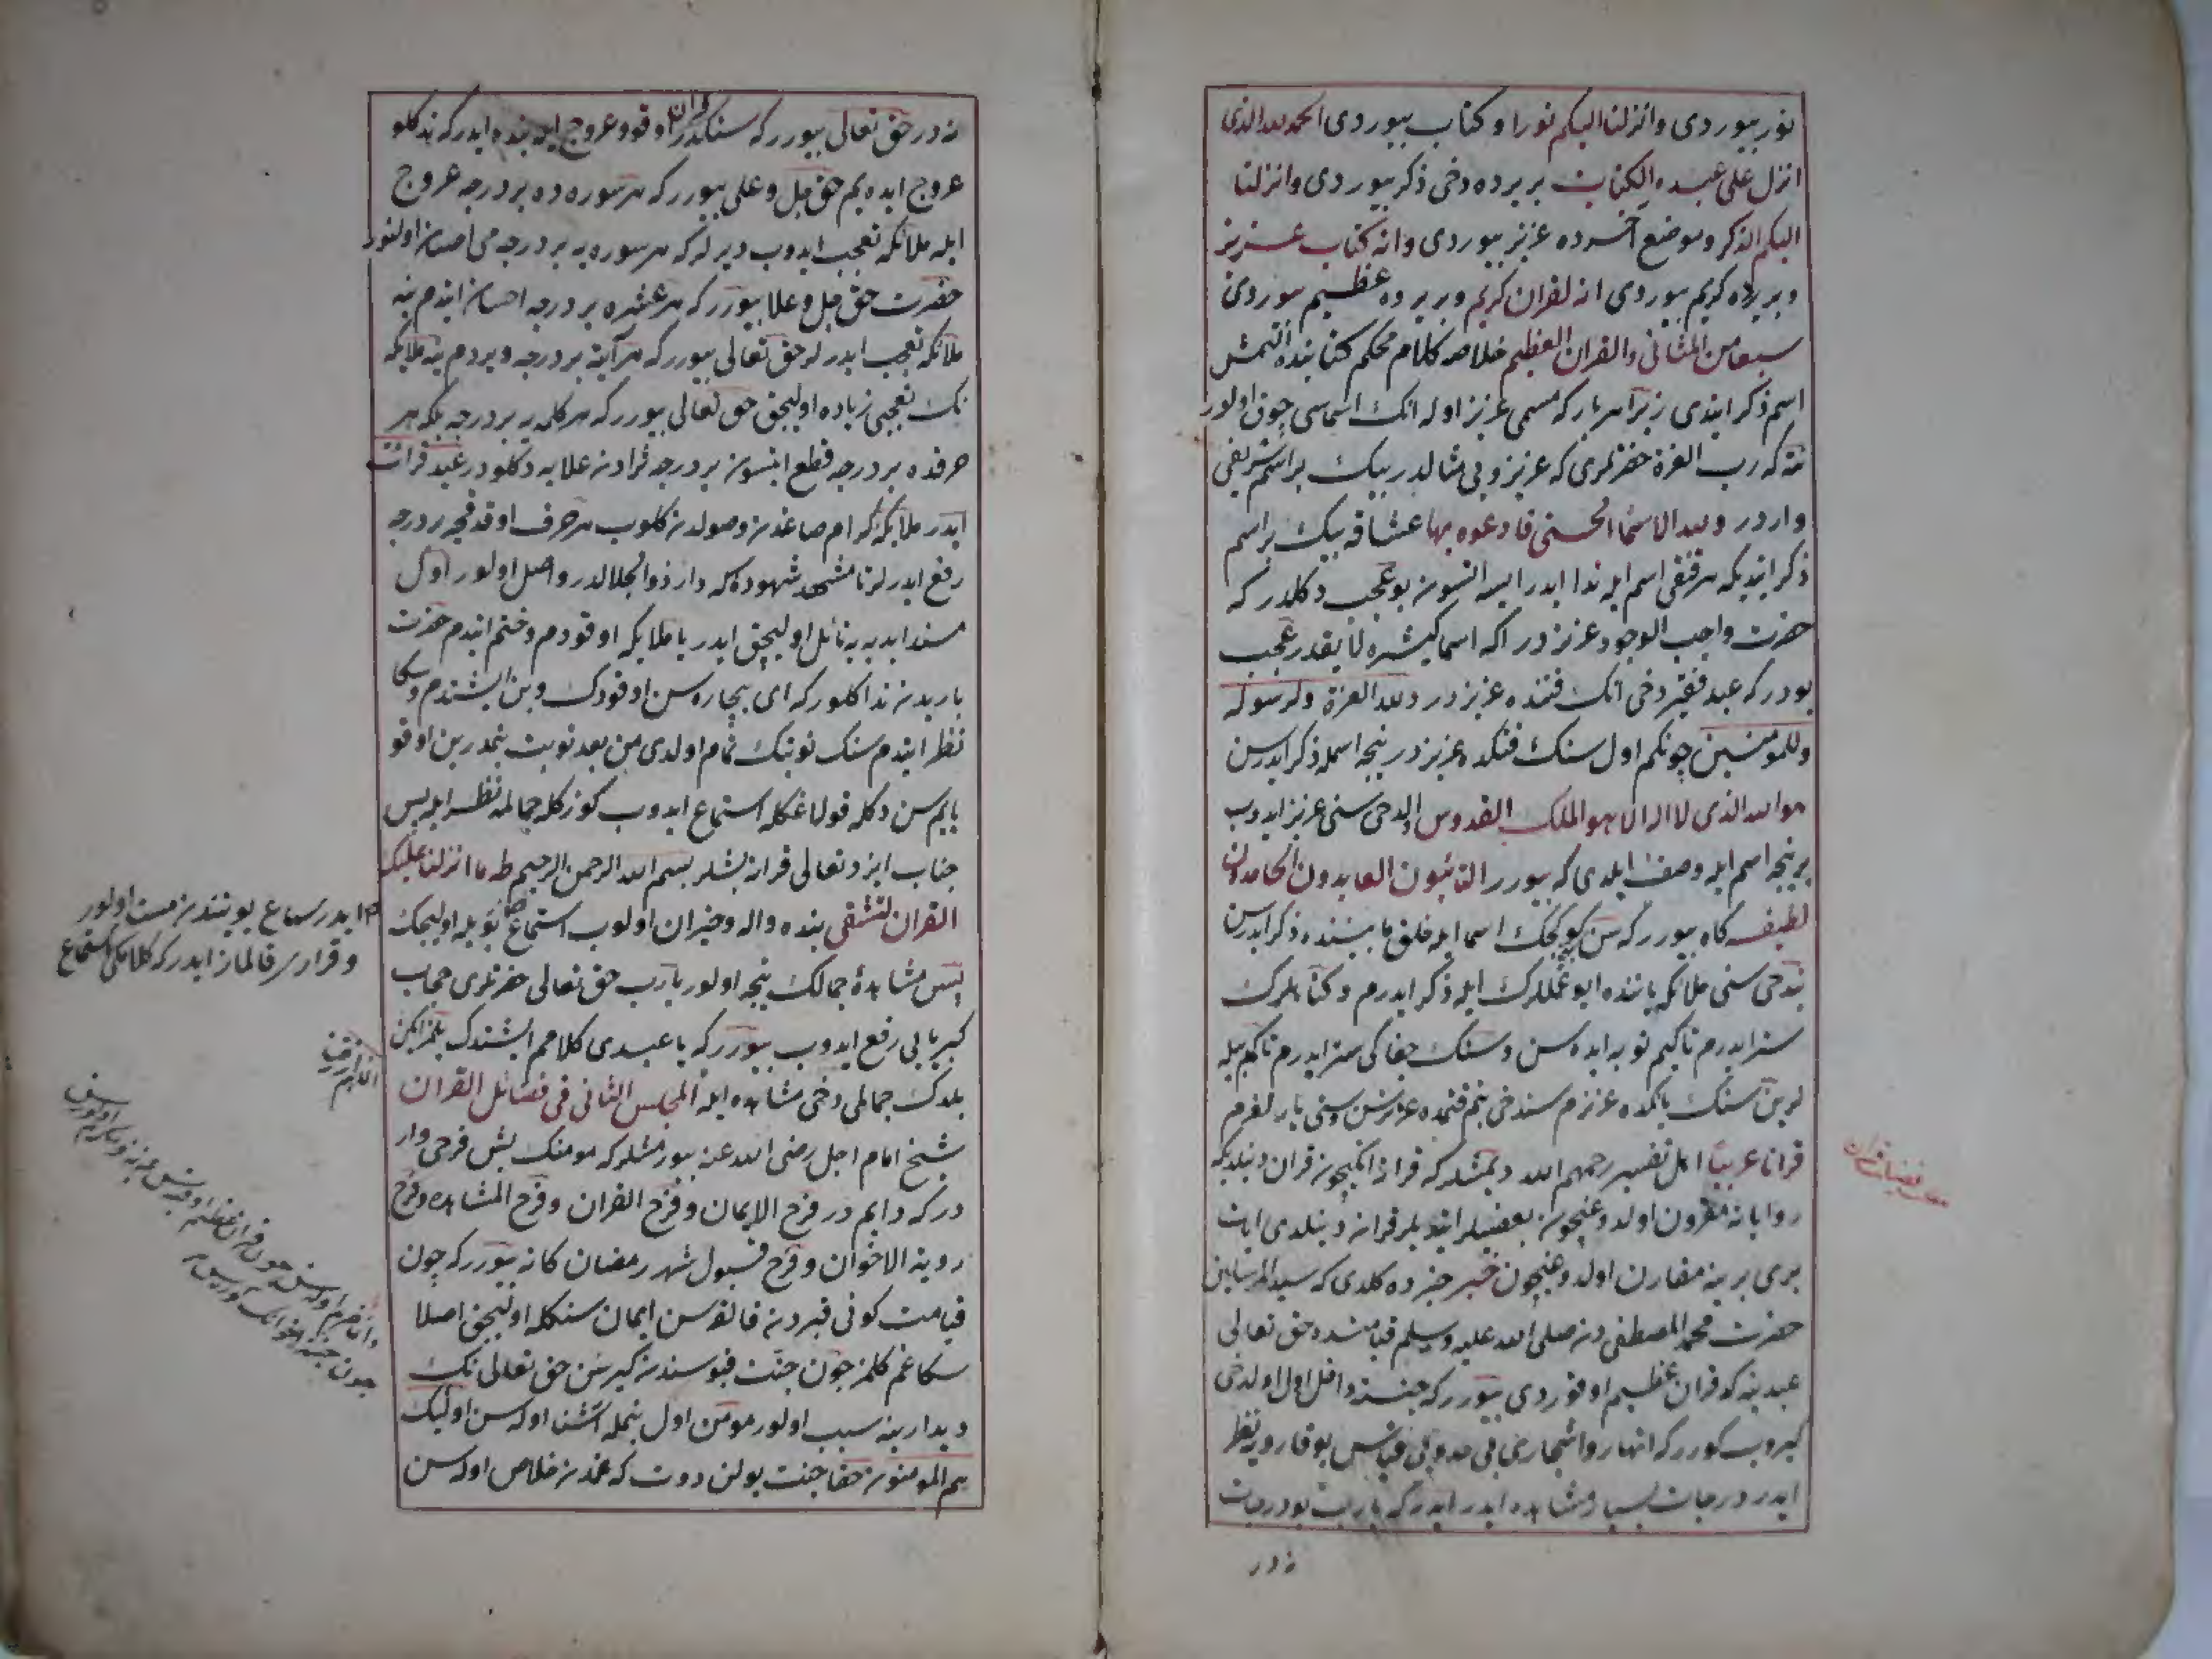 نور بیوردی وانزلنا الیکم نورا و کتاب بیوردی الحمد لله الذی
انزل علی عبده الکتاب بر یرده دخی ذکر بیوردی وانزلنا
الیکم الذکر وموضع آخرده عزیز بیوردی وانه کتاب عزیز
وبر یرده کریم بیوردی انه لقران کریم وبر یرده عظیم بیوردی
سبعا من المثانی والقران العظیم خلاصه کلام محکم کتابنده التمش
اسم ذکر ایتدی زیرا هر بار که مسمی عزیز اوله انک اسماسی چوق اولور
نته که رب العزة حضرتلری که عزیز وبی مثالدر بیک بر اسم شریفی
واردر ولله الاسما الحسنی فادعوه بها عشاقه بیک بر اسم
ذکر ایتدیکه هر قنقی اسم ایله ندا ایدر ایسه ایتسون بو عجب دکلدر که
حضرت واجب الوجود عزیزدر اکه اسما کثیره لایقدر عجب
بودر که عبد فقیر دخی انک قتنده عزیزدر ولله العزة ولرسوله
وللمومنین چونکم اول سنک قتکده عزیزدر نیجه اسمله ذکر ایدرسن
هو الله الذی لا اله الا هو الملک القدوس اولدخی سنی عزیز ایدوب
بر نیجه اسم ایله وصف ایلدی که بیورر التائبون العابدون الحامدون
لطیفه کاه بیورر که سن کوکچک اسما ایله خلق مابیننده ذکر ایدرسن
بندخی سنی ملائکه یاننده ایو عمللرک ایله ذکر ایدرم و کناهلرک
ستر ایدرم تاکیم توبه ایده سن وسنک جفاکی ستر ایدرم تاکم بیله
لر بن سنک یانکده عزیزم سندخی بنم قتمده عزیزسن وسنی یارلغرم
قرانا عربیا اهل تفسیر رحمهم الله دیمشلر که قرانه انکیچون قران دینلدیکه
روایاته مقرون اولدوغیچون بعضیلر ایتدیلر قرانه دینلدی ایات
بری برینه مقارن اولدوغیچون خبر خبرده کلدی که سید المرسلین
حضرت محمد المصطفی دن صلی الله علیه وسلم قیامتده حق تعالی
عبدینه که قران عظیم اوقوردی بیورر که جنته داخل اول اولدخی
کیروب کورر که انهار واشجاری بی حد وبی قیاس یوقارویه نظر
ایدر درجات بسیار مشاهده ایدر ایدر که یارب بو درجات
ندر
فضیلت قران
ندر حق تعالی بیورر که سنکدر قران اوقو وعروج ایله بنده ایدر که نه کلو
عروج ایده یم حق جل وعلی بیورر که هر سوره ده بر درجه عروج
ایله ملائکه تعجب ایدوب دیرلر که هر سوره یه بر درجه می احسان اولنور
حضرت حق جل وعلا بیورر که هر عشره بر درجه احسان ایتدم ینه
ملائکه تعجب ایدرلر حق تعالی بیورر که هر آیته بر درجه ویردم ینه ملایکه
نک تعجبی زیاده اولیجق حق تعالی بیورر که هر کلمه یه بر درجه بلکه هر
حرفده بر درجه قطع ایتسون بر درجه ثرادن علایه دکلودر عبد قرائت
ایدر ملایکه کرام صاغدن وصولدن کلوب هر حرف اوقدقجه بر درجه
رفع ایدرلر تا مشهد شهوده که دار ذو الجلالدر واصل اولور اول
مسند ابدیه یه نائل اولیجق ایدر یا ملایکه اوقودم وختم ایتدم حضرت
باریدن ندا کلور که ای بیچاره سن اوقودک وبن ایشتدم وسکا
نظر ایتدم سنک نوبتک تمام اولدی من بعد نوبت بنمدر بن اوقو
یایم سن دکله قولاغکله استماع ایدوب کوزکله جماله نظر ایله پس
جناب ایزد تعالی قرانه بشلر بسم الله الرحمن الرحیم طه ما انزلنا علیک
القران لتشقی بنده واله وحیران اولوب استماع بویله اولیجک
پس مشاهدهٔ جمالک نیجه اولور یارب حق تعالی حضرتلری حجاب
کبریایی رفع ایدوب بیورر که یا عبدی کلامم ایشتدک بلمز ایکن
بلدک جمالمی دخی مشاهده ایله المجلس الثانی فی فضائل القران
شیخ امام اجل رضی الله عنه بیورمشلر که مومنک بش فرحی وار
در که دایم در فرح الایمان وفرح القران وفرح المشاهده وفرح
رویة الاخوان وفرح قبول شهر رمضان کانه بیورر که چون
قیامت کونی قبردن قالقوسن ایمان سنکله اولیجق اصلا
سکا غم کلمز چون جنت قپوسندن کیرسن حق تعالی نک
دیدارینه سبب اولور مومن اول بنمله آشنا اوله سن اولیک
هم المومنون حقا جنت بولن دوت که غمدن خلاص اوله سن
ایدر سماع بویتندن مست اولور
وقراری قالماز ایدر که کلامکی استماع
اللهم ارزقنا